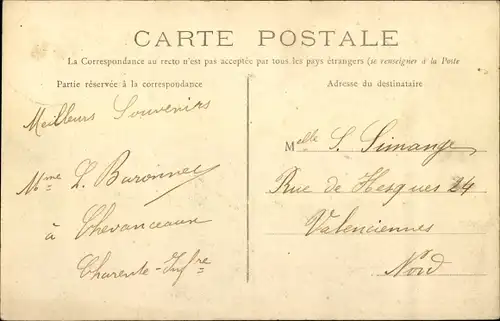 CARTE POSTALE
La Correspondance au recto n'est pas acceptée par tous les pays étrangers (se renseigner à la Poste
Partie réservée à la correspondance
Adresse du destinataire
Meilleurs Souvenirs
Mme L. Baronnet
à
Chevanceaux
Charente-Infre
Melle S. Simange
Rue de Hesques 24
Valenciennes
Nord